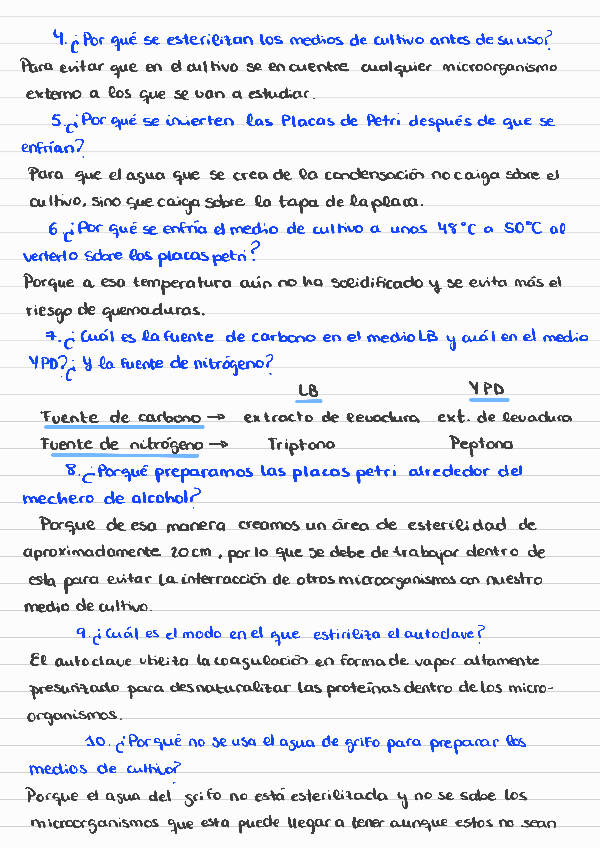 4. ¿Por qué se esterilizan los medios de cultivo antes de su uso?
Para evitar que en el cultivo se encuentre cualquier microorganismo
externo a los que se van a estudiar.
5. ¿Por qué se invierten las Placas de Petri después de que se
enfrían?
Para que el agua que se crea de la condensación no caiga sobre el
cultivo, sino que caiga sobre la tapa de la placa.
6 ¿Por qué se enfría el medio de cultivo a unos 48°C a 50°C al
verterlo sobre las placas petri?
Porque a esa temperatura aún no ha solidificado y se evita más el
riesgo de quemaduras.
7. ¿Cuál es la fuente de carbono en el medio LB y cuál en el medio
YPD? ¿Y la fuente de nitrógeno?
LB YPD
Fuente de carbono → extracto de levadura ext. de levadura
Fuente de nitrógeno → Triptona Peptona
8. ¿Porqué preparamos las placas petri alrededor del
mechero de alcohol?
Porque de esa manera creamos un área de esterilidad de
aproximadamente 20cm, por lo que se debe de trabajar dentro de
esta para evitar la interracción de otros microorganismos con nuestro
medio de cultivo.
9. ¿Cuál es el modo en el que estiriliza el autoclave?
El autoclave utiliza la coagulación en forma de vapor altamente
presurizado para desnaturalizar las proteínas dentro de los micro-
organismos.
10. ¿Por qué no se usa el agua de grifo para preparar los
medios de cultivo?
Porque el agua del grifo no está esterilizada y no se sabe los
microorganismos que esta puede llegar a tener aunque estos no sean